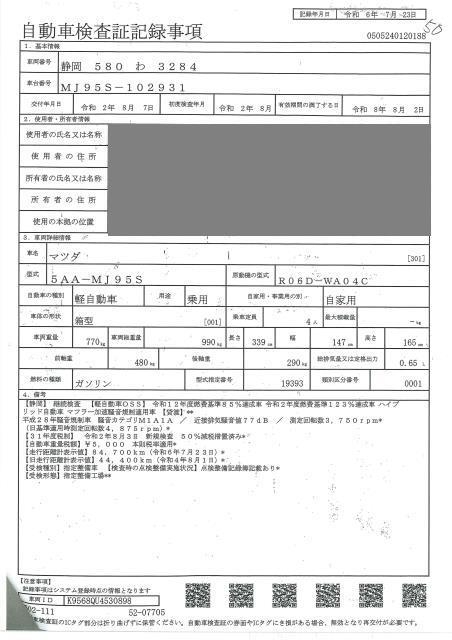 記録年月日 令和 6年 7月 23日
自動車検査証記録事項
0505240120188
50
1. 基本情報
車両番号 静岡 580 わ 3284
車台番号 MJ95S-102931
交付年月日 令和 2年 8月 7日 初度検査年月 令和 2年 8月 有効期間の満了する日 令和 8年 8月 2日
2. 使用者・所有者情報
使用者の氏名又は名称
使用者の住所
所有者の氏名又は名称
所有者の住所
使用の本拠の位置
3. 車両詳細情報
車名 マツダ [301]
型式 5AA-MJ95S 原動機の型式 R06D-WA04C
自動車の種別 軽自動車 用途 乗用 自家用・事業用の別 自家用
車体の形状 箱型 [001] 乗車定員 4人 最大積載量 -kg
車両重量 770kg 車両総重量 990kg 長さ 339cm 幅 147cm 高さ 165cm
前軸重 480kg 後軸重 290kg 総排気量又は定格出力 0.65 L
燃料の種類 ガソリン 型式指定番号 19393 類別区分番号 0001
4. 備考
【静岡】 継続検査 【軽自動車OSS】 令和12年度燃費基準85%達成車 令和2年度燃費基準123%達成車 ハイブ
リッド自動車 マフラー加速騒音規制適用車 【貸渡】**
平成28年騒音規制車 騒音カテゴリM1A1A / 近接排気騒音値77dB / 測定回転数3,750rpm*
(旧基準適用時測定回転数4,875rpm)*
【31年度税制】 令和2年8月3日 新規検査 50%減税措置済み*
[自動車重量税額] ¥5,000 本則税率適用*
[走行距離計表示値] 84,700km (令和6年7月23日)*
[旧走行距離計表示値] 44,400km (令和4年8月1日)*
【受検種別】指定整備車 【検査時の点検整備実施状況】点検整備記録簿記載あり*
【受検形態】指定整備工場**
【注意事項】
記録事項はシステム登録時点の情報となります
車両ID K9568QU4530898
02-111 52-07705
自動車検査証のICタグ部分は折り曲げずに保管ください。自動車検査証の券面やICタグにき損がある場合、無効となり再交付が必要です。